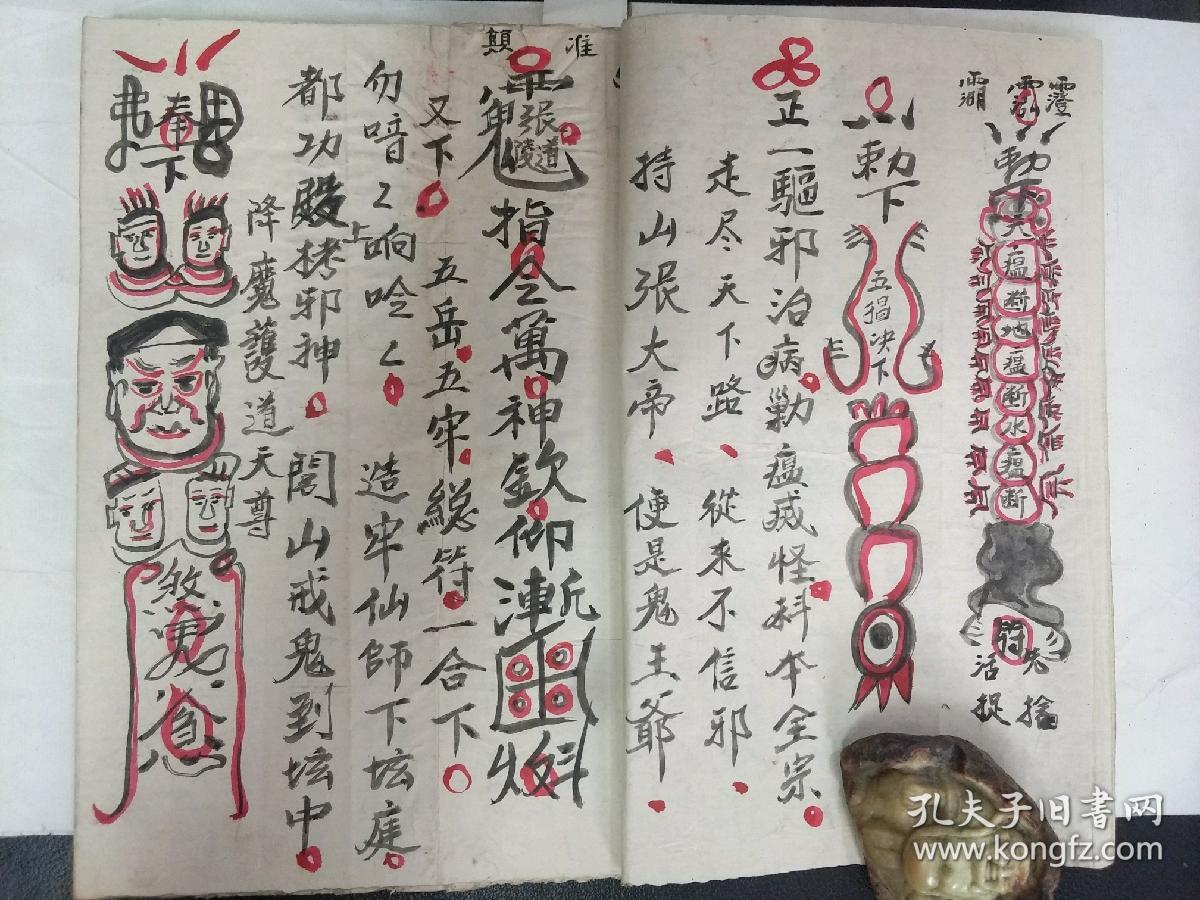 敕下天瘟断地瘟断水瘟断
活捉
敕下
五猖决下
正一驅邪治病勦瘟滅怪科本全宗
走尽天下路 從来不信邪
持山張大帝 便是鬼王爺
准
顛
張道陵
指令萬神欽仰漸
又下 五岳五牢總符一合下
勿喑〻响唫〻 造牢仙師下坛庭
都功殿拷邪神 閭山戒鬼到坛中
降魔護道天尊
奉下
孔夫子旧書网
www.kongfz.com